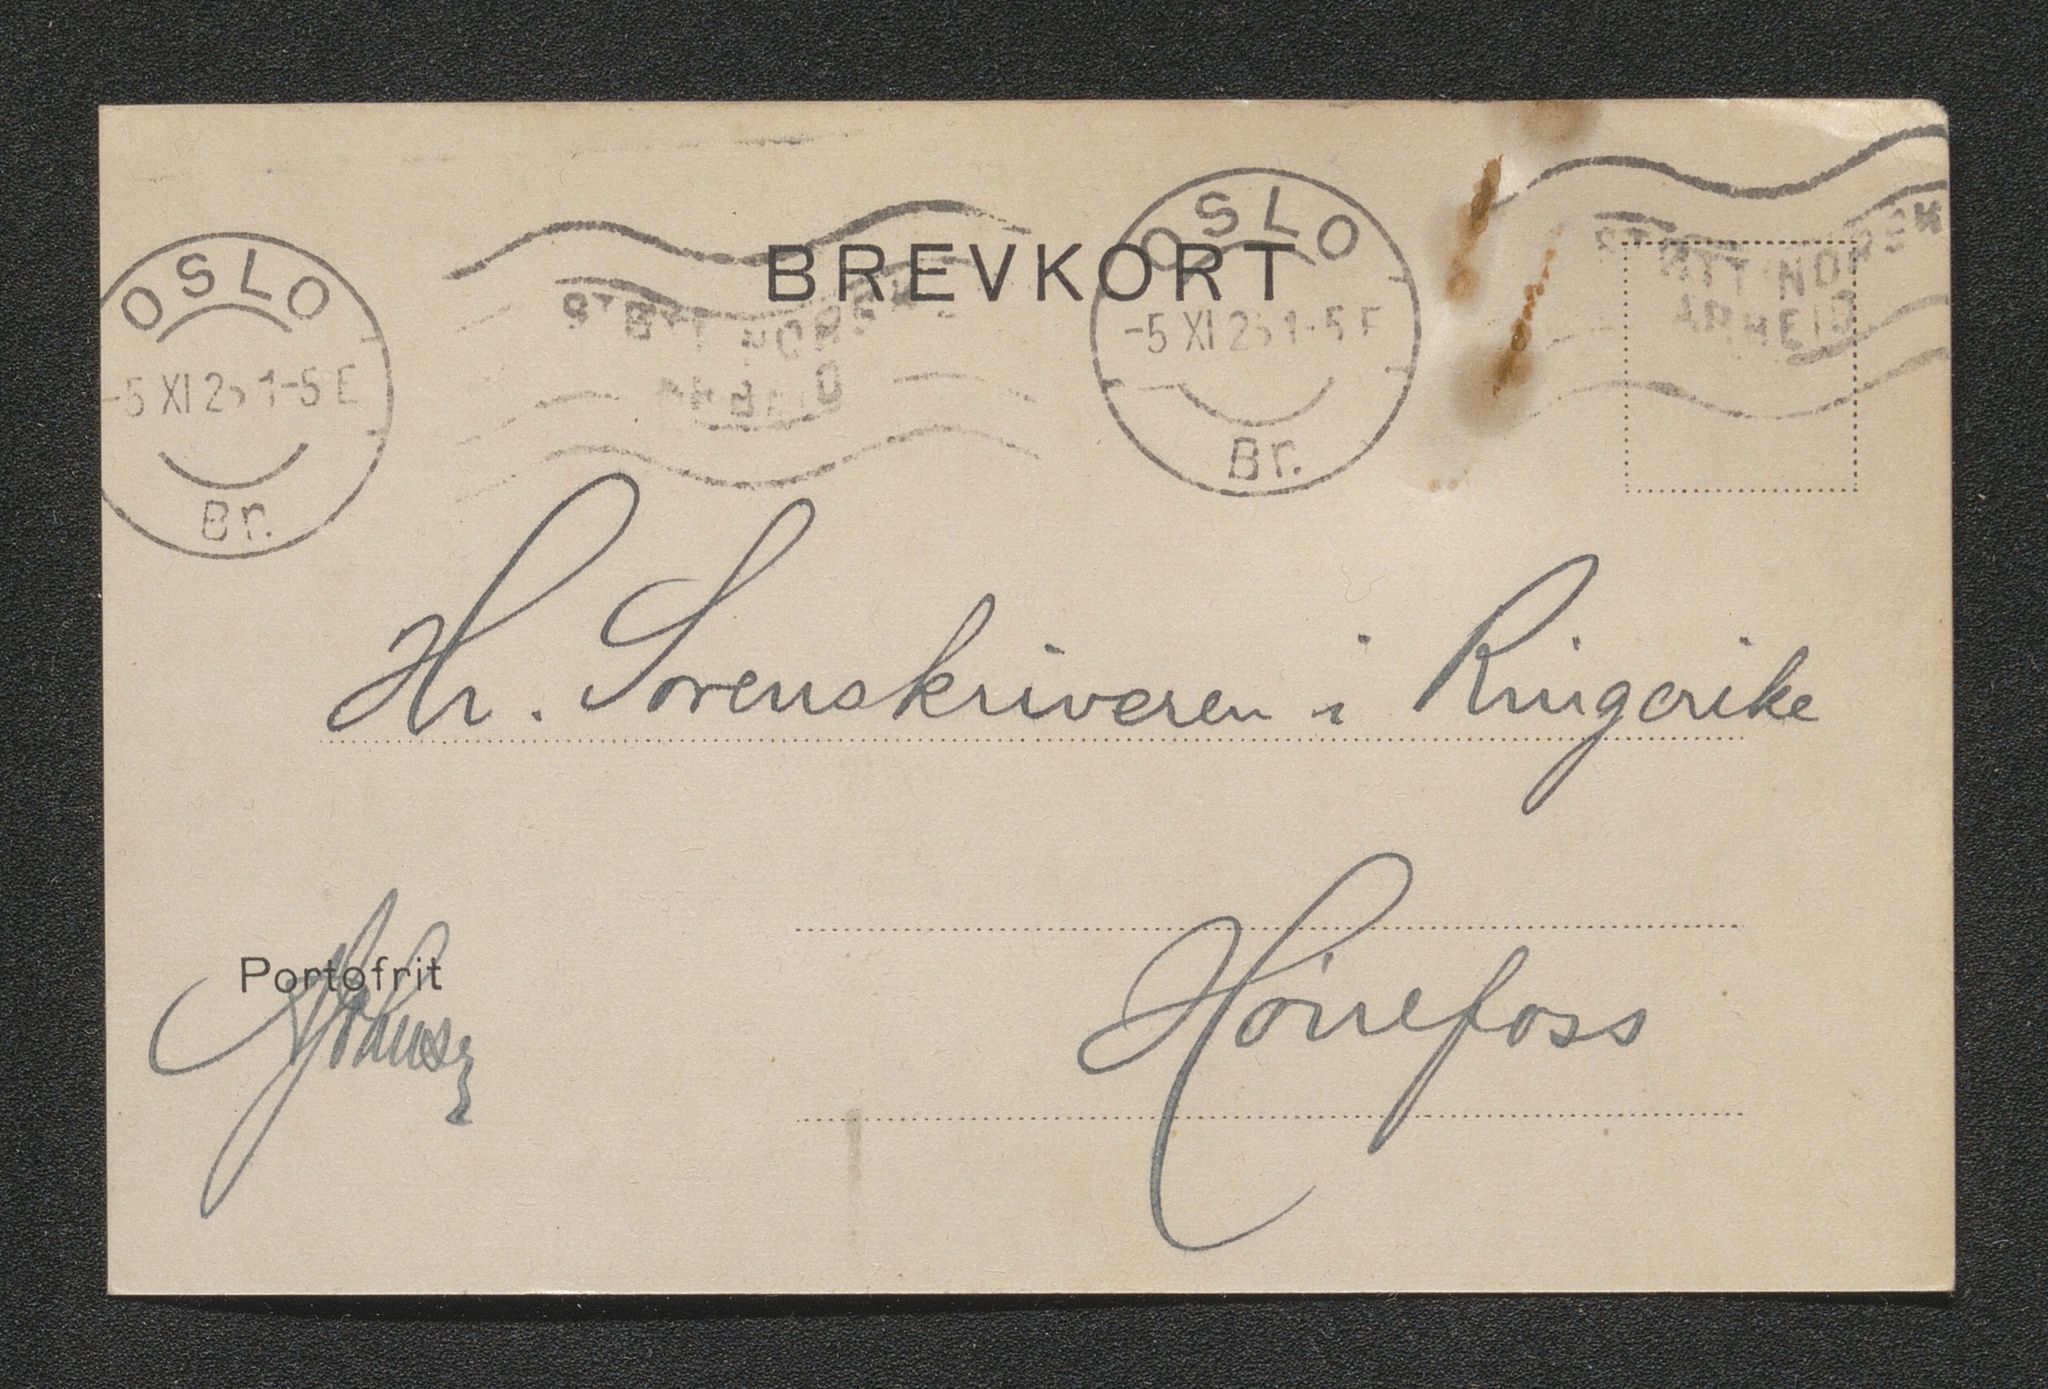 BREVKORT
OSLO
-5 XI 2 1-5 E
Br.
STØTT NORSK
ARBEID
OSLO
-5 XI 2 1-5 E
Br.
STØTT NORSK
ARBEID
Hr. Sorenskriveren i Ringerike
Hönefoss
Portofrit